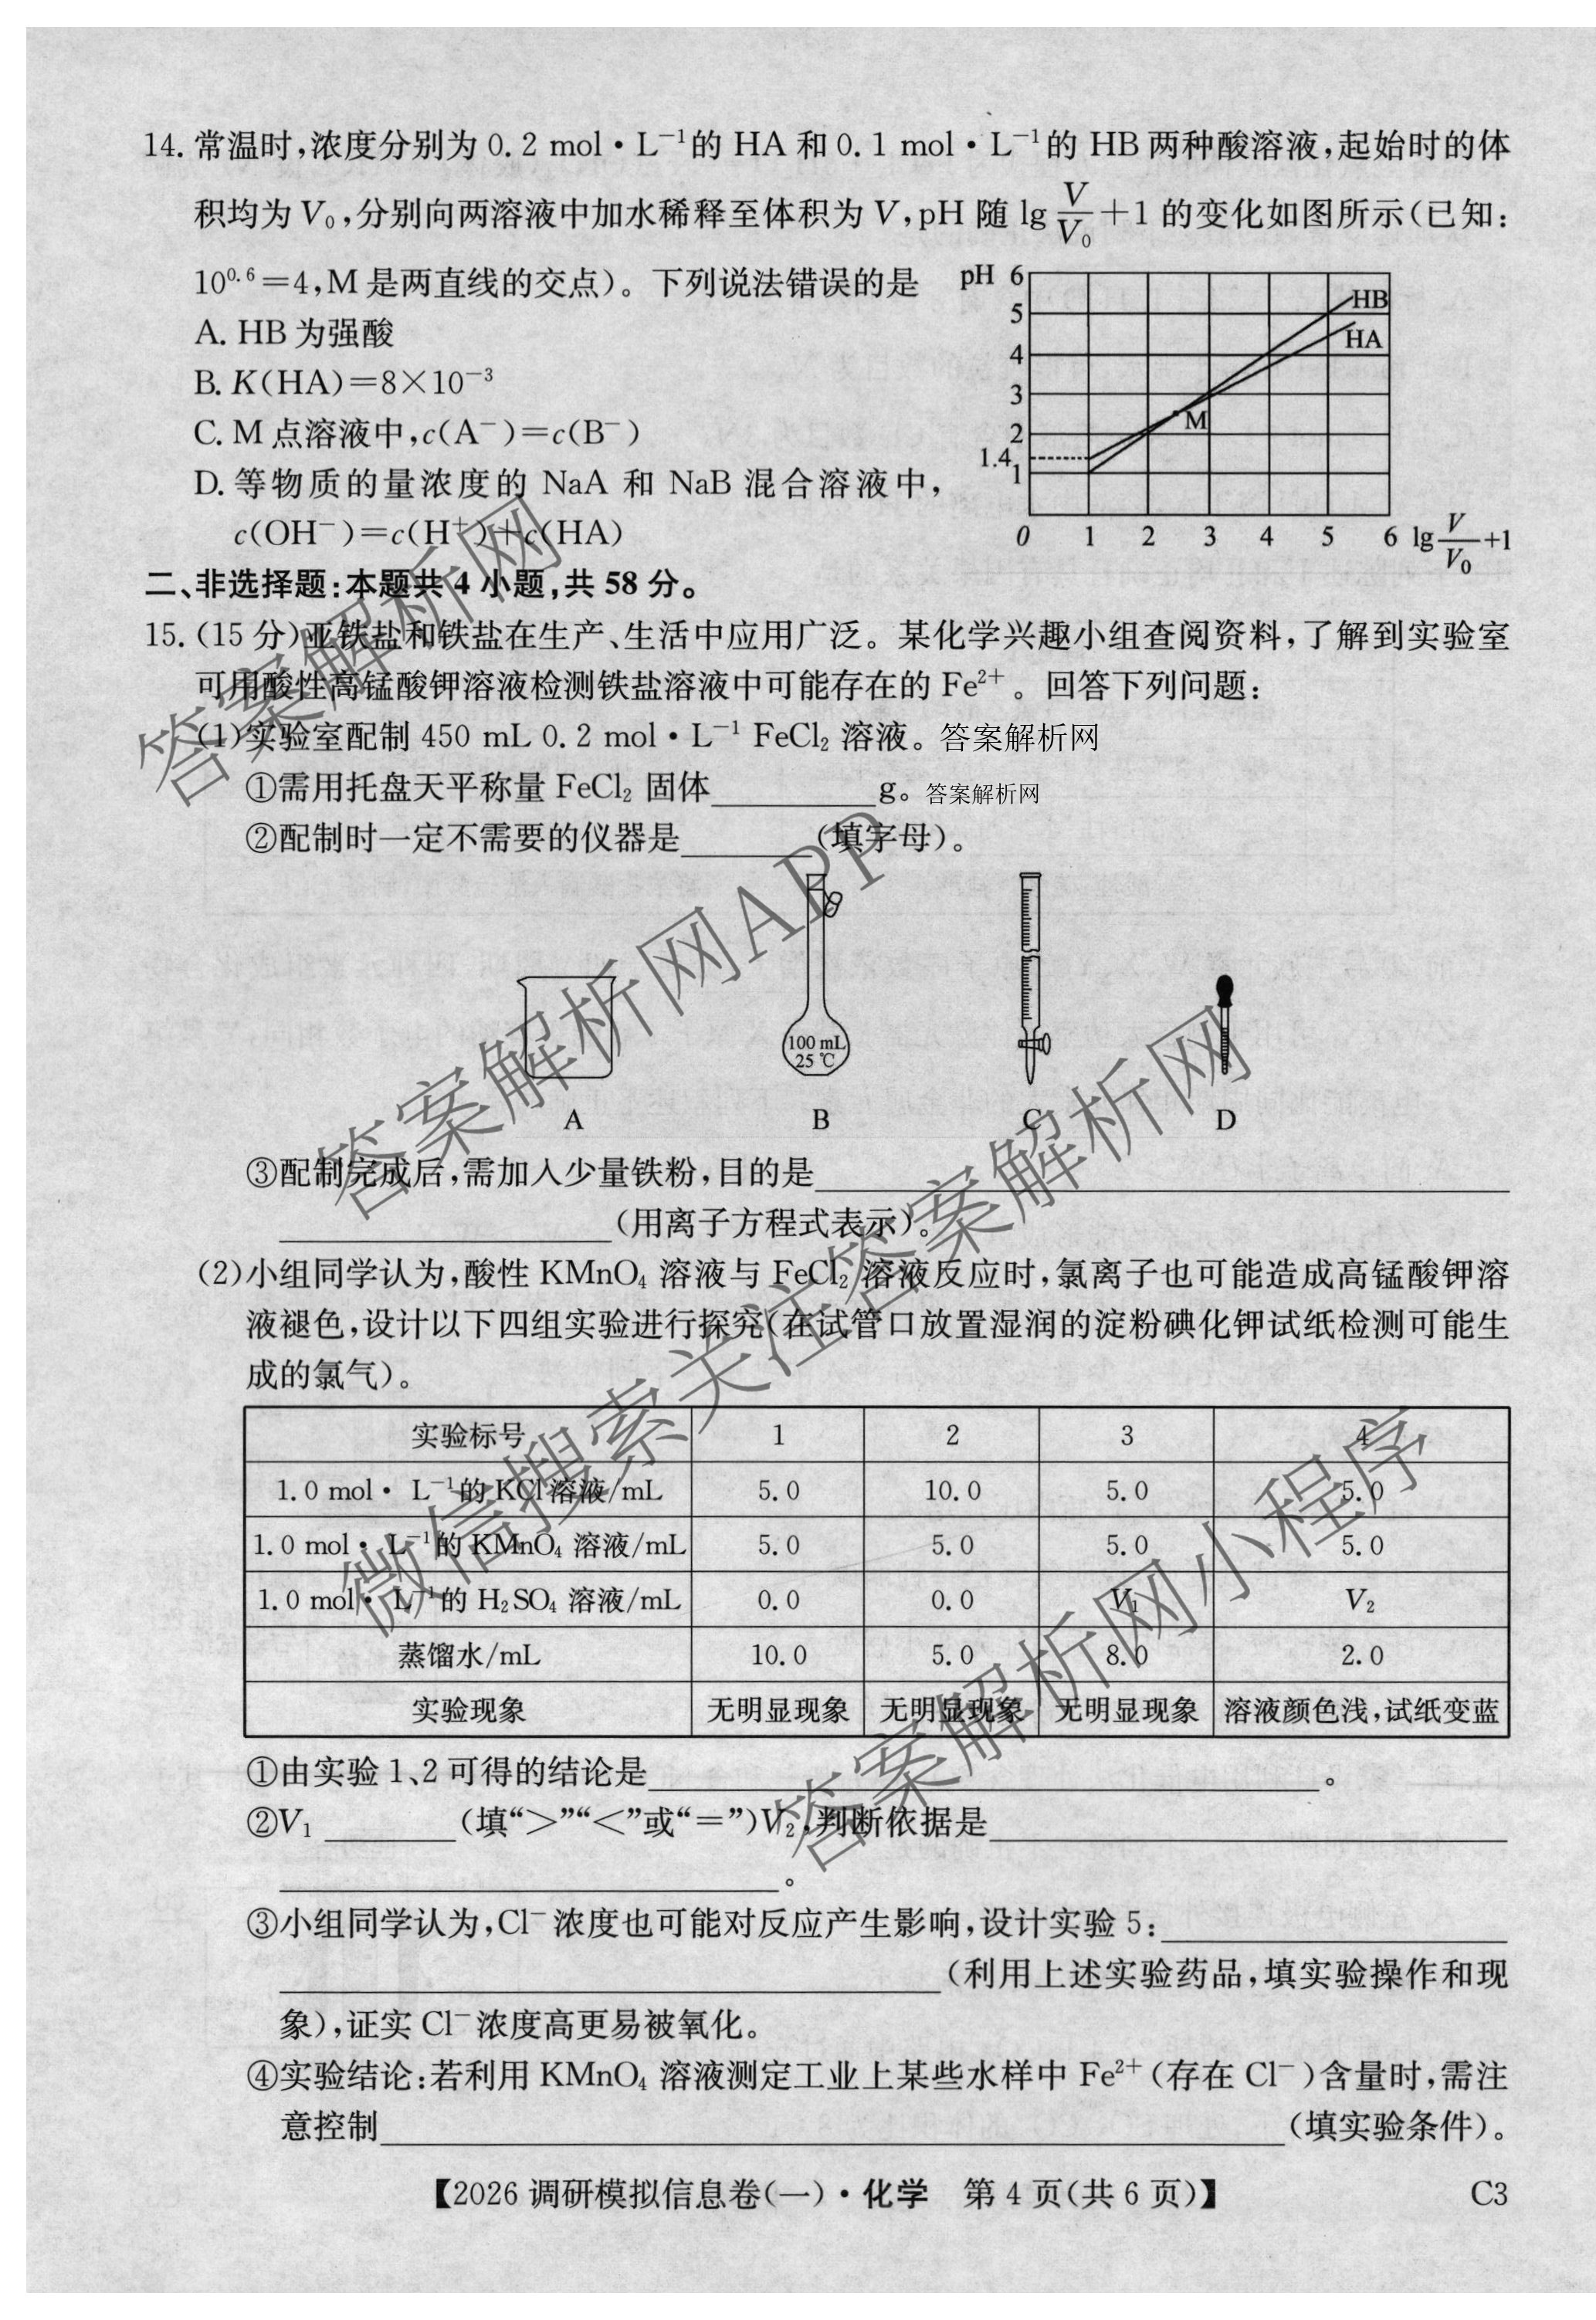 14. 常温时,浓度分别为 0.2 mol·L⁻¹的 HA 和 0.1 mol·L⁻¹的 HB 两种酸溶液,起始时的体
积均为 V₀,分别向两溶液中加水稀释至体积为 V,pH 随 lg V/V₀+1 的变化如图所示(已知:
10⁰·⁶=4,M 是两直线的交点)。下列说法错误的是
A. HB 为强酸
B. K(HA)=8×10⁻³
C. M 点溶液中,c(A⁻)=c(B⁻)
D. 等物质的量浓度的 NaA 和 NaB 混合溶液中,
c(OH⁻)=c(H⁺)+c(HA)
pH 6
5
4
3
2
1.4
1
HB
HA
M
0 1 2 3 4 5 6 lg V/V₀+1
二、非选择题:本题共 4 小题,共 58 分。
15. (15 分)亚铁盐和铁盐在生产、生活中应用广泛。某化学兴趣小组查阅资料,了解到实验室
可用酸性高锰酸钾溶液检测铁盐溶液中可能存在的 Fe²⁺。回答下列问题:
(1)实验室配制 450 mL 0.2 mol·L⁻¹ FeCl₂ 溶液。答案解析网
①需用托盘天平称量 FeCl₂ 固体________g。答案解析网
②配制时一定不需要的仪器是________(填字母)。
100 mL
25 ℃
A B C D
③配制完成后,需加入少量铁粉,目的是________
________(用离子方程式表示)。
(2)小组同学认为,酸性 KMnO₄ 溶液与 FeCl₂ 溶液反应时,氯离子也可能造成高锰酸钾溶
液褪色,设计以下四组实验进行探究(在试管口放置湿润的淀粉碘化钾试纸检测可能生
成的氯气)。
实验标号 1 2 3 4
1.0 mol· L⁻¹的 KCl 溶液/mL 5.0 10.0 5.0 5.0
1.0 mol· L⁻¹的 KMnO₄ 溶液/mL 5.0 5.0 5.0 5.0
1.0 mol· L⁻¹的 H₂SO₄ 溶液/mL 0.0 0.0 V₁ V₂
蒸馏水/mL 10.0 5.0 8.0 2.0
实验现象 无明显现象 无明显现象 无明显现象 溶液颜色浅,试纸变蓝
①由实验 1、2 可得的结论是________。
②V₁ ________(填“>”“<”或“=”)V₂,判断依据是________
________。
③小组同学认为,Cl⁻ 浓度也可能对反应产生影响,设计实验 5:________
________(利用上述实验药品,填实验操作和现
象),证实 Cl⁻ 浓度高更易被氧化。
④实验结论:若利用 KMnO₄ 溶液测定工业上某些水样中 Fe²⁺(存在 Cl⁻)含量时,需注
意控制________(填实验条件)。
【2026 调研模拟信息卷(一)·化学 第 4 页(共 6 页)】 C3
答案解析网
答案解析网APP
微信搜索关注答案解析网
答案解析网小程序